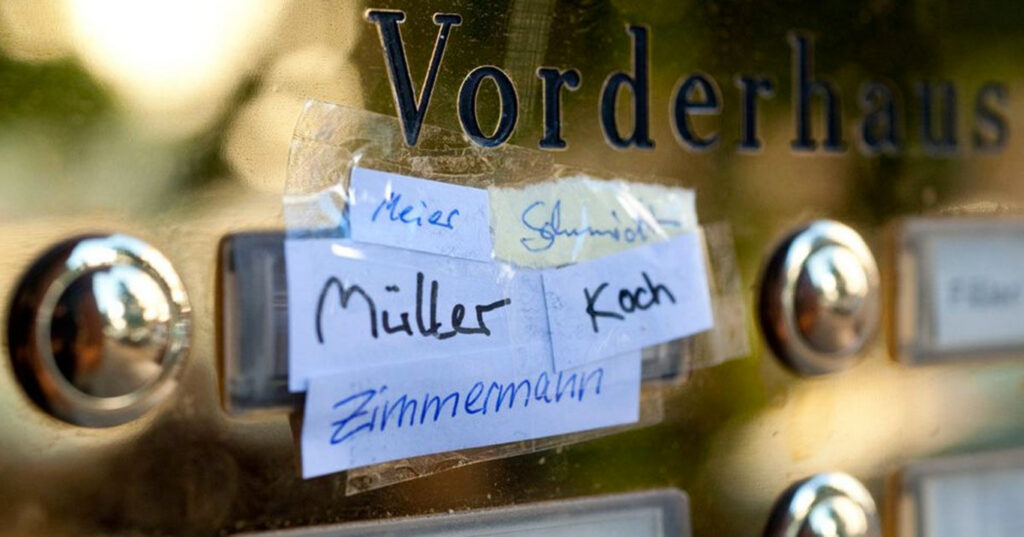 Vorderhaus
Meier Schmidt
Müller Koch
Zimmermann